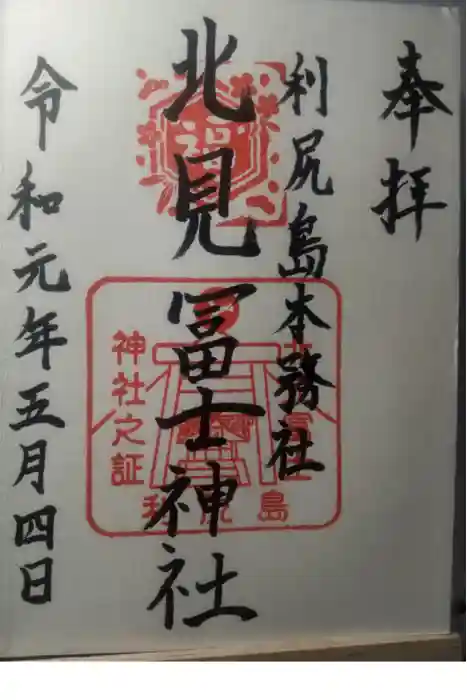 奉拝
利尻島本務社
北見冨士神社
令和元年五月四日
神社之証
利尻島